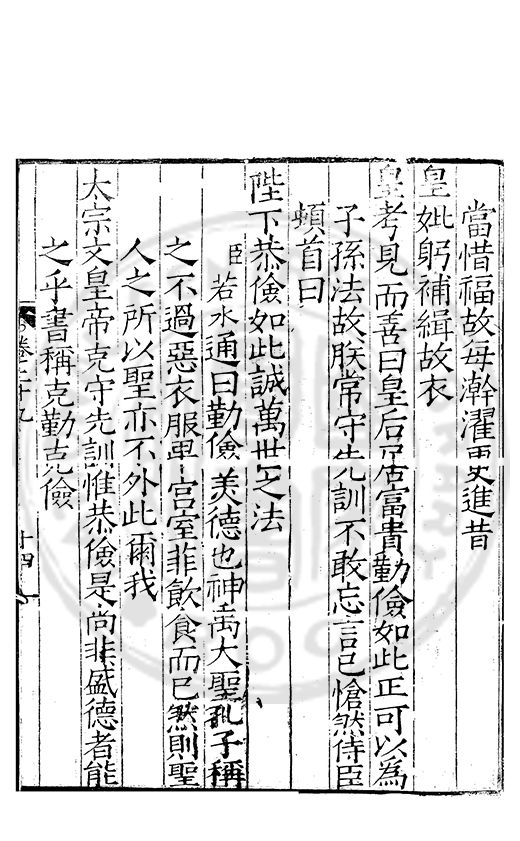 當惜福故每澣濯更進昔
皇妣躬補緝故衣
皇考見而善曰皇后居富貴勤儉如此正可以為
子孫法故朕常守先訓不敢忘言已愴然侍臣
頓首曰
陛下恭儉如此誠萬世之法
臣若水通曰勤儉美德也神禹大聖孔子稱
之不過惡衣服卑宮室菲飲食而已然則聖
人之所以聖亦不外此爾我
太宗文皇帝克守先訓惟恭儉是尚非盛德者能
之乎書稱克勤克儉
卷二十九
十四